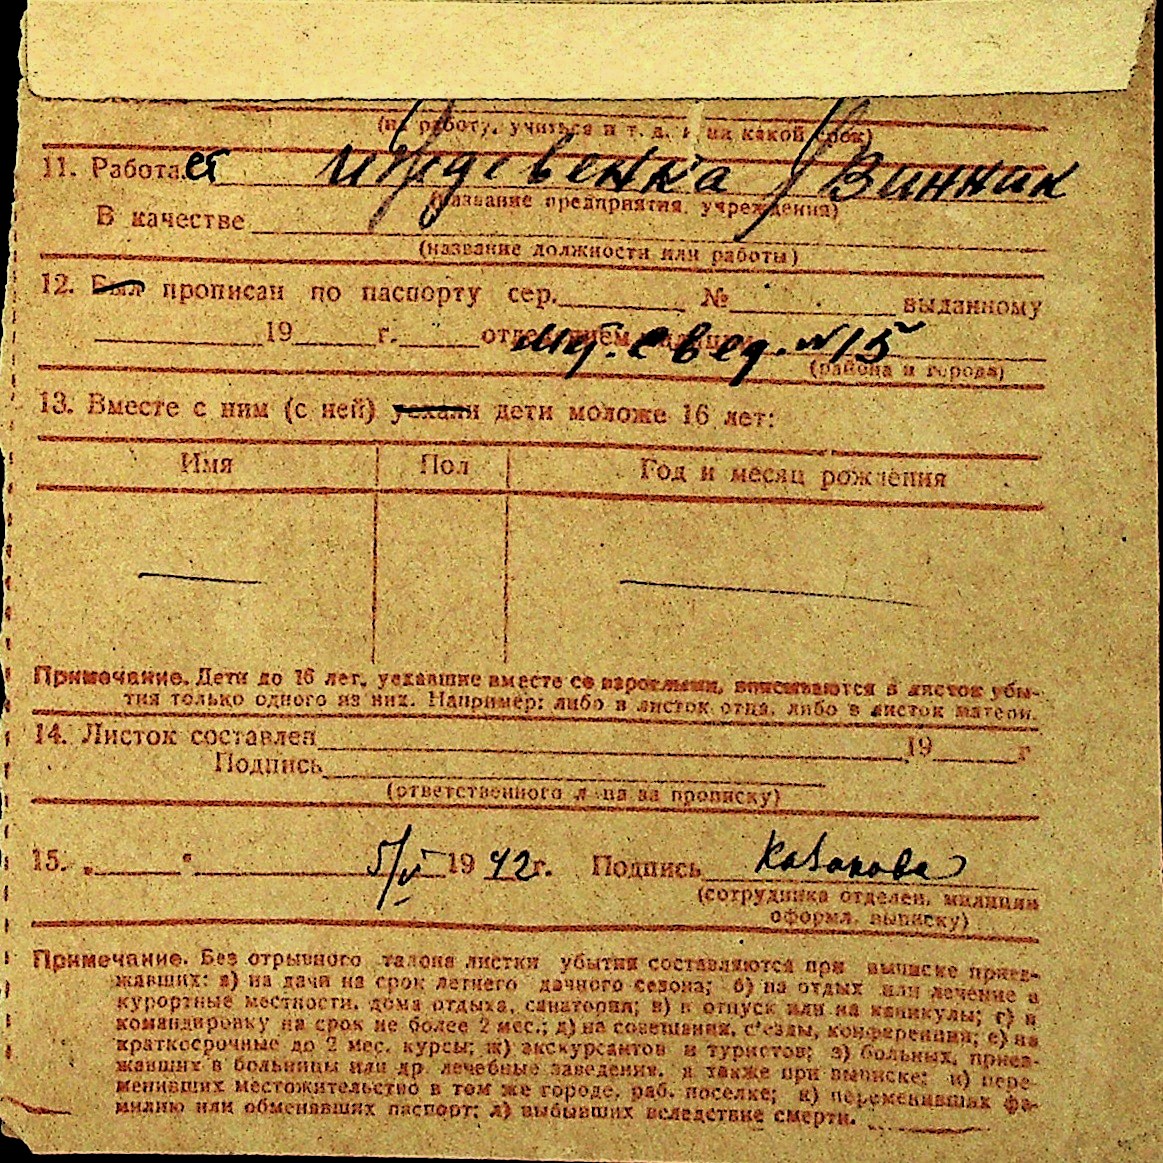 (на работу, учиться и т. д. и на какой срок)
11. Работает иждевенка Винник
(название предприятия, учреждения)
В качестве
(название должности или работы)
12. Был прописан по паспорту сер. № выданному
19 г. отделением
эв. свед. №15
(района и города)
13. Вместе с ним (с ней) уехали дети моложе 16 лет:
Имя Пол Год и месяц рождения
Примечание. Дети до 16 лет, уехавшие вместе со взрослыми, вписываются в листок убы-
тия только одного из них. Например: либо в листок отца, либо в листок матери.
14. Листок составлен 19 г
Подпись
(ответственного лица за прописку)
15. „ “ 5/V 1942г. Подпись Казакова
(сотрудника отделен. милиции
оформл. выписку)
Примечание. Без отрывного талона листки убытия составляются при выписке приез-
жавших: а) на дачи на срок летнего дачного сезона; б) на отдых или лечение в
курортные местности, дома отдыха, санатории; в) в отпуск или на каникулы; г) в
командировку на срок не более 2 мес.; д) на совещания, с'езды, конференции; е) на
краткосрочные до 2 мес. курсы; ж) экскурсантов и туристов; з) больных, приез-
жавших в больницы или др. лечебные заведения, а также при выписке: и) пере-
менивших местожительство в том же городе, раб. поселке; к) переменивших фа-
милию или обменявших паспорт; л) выбывших вследствие смерти.